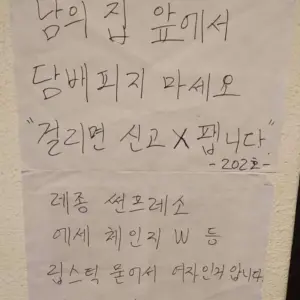 남의 집 앞에서
담배피지 마세요
"걸리면 신고 X 팹니다"
-202호-
레종 썬프레소
에세 체인지 W 등
립스틱 묻어서 여자인거 압니다.